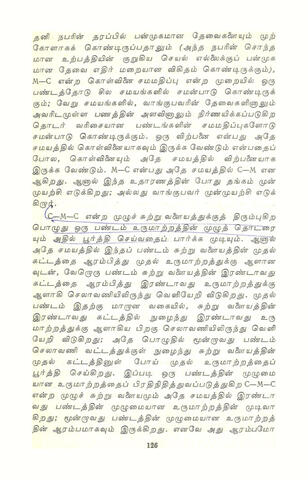 தனி நபரின் தரப்பில் பன்முகமான தேவைகளையும் முற்
கோளாகக் கொண்டிருப்பதாலும் (அந்த நபரின் சொந்த
மான உற்பத்தியின் குறுகிய செயல் எல்லைக்குப் பன்முக
மான தேவை எதிர் மறையான விகிதம் கொண்டிருக்கும்),
M—C என்ற கொள்வினை சமமதிப்பு என்ற முறையில் ஒரு
பண்டத்தோடு சில சமயங்களில் சமன்பாடு கொண்டிருக்
கும்; வேறு சமயங்களில், வாங்குபவரின் தேவைகளினாலும்
அவரிடமுள்ள பணத்தின் அளவினாலும் நிர்ணயிக்கப்படுகிற
தொடர் வரிசையான பண்டங்களின் சமமதிப்புகளோடு
சமன்பாடு கொண்டிருக்கும். ஒரு விற்பனை என்பது அதே
சமயத்தில் கொள்வினையாகவும் இருக்க வேண்டும் என்பதைப்
போல, கொள்வினையும் அதே சமயத்தில் விற்பனையாக
இருக்க வேண்டும். M—C என்பது அதே சமயத்தில் C—M என
ஆகிறது. ஆனால் இந்த உதாரணத்தின் போது தங்கம் முன்
முயற்சி எடுக்கிறது; அல்லது வாங்குபவர் முன்முயற்சி எடுக்
கிறார்.
C—M—C என்ற முழுச் சுற்று வளையத்துக்குத் திரும்புகிற
பொழுது ஒரு பண்டம் உருமாற்றத்தின் முழுத் தொடரை
யும் அதில் பூர்த்தி செய்வதைப் பார்க்க முடியும். ஆனால்
அதே சமயத்தில் இந்தப் பண்டம் சுற்று வளையத்தின் முதல்
கட்டத்தை ஆரம்பித்து முதல் உருமாற்றத்துக்கு ஆளான
வுடன், வேறொரு பண்டம் சுற்று வளையத்தின் இரண்டாவது
கட்டத்தை ஆரம்பித்து இரண்டாவது உருமாற்றத்துக்கு
ஆளாகி செலாவணியிலிருந்து வெளியேறி விடுகிறது. முதல்
பண்டம் இதற்கு மாறான வகையில், சுற்று வளையத்தின்
இரண்டாவது கட்டத்தில் நுழைந்து இரண்டாவது உரு
மாற்றத்துக்கு ஆளாகிய பிறகு செலாவணியிலிருந்து வெளி
யேறி விடுகிறது; அதே பொழுதில் மூன்றாவது பண்டம்
செலாவணி வட்டத்துக்குள் நுழைந்து சுற்று வளையத்தின்
முதல் கட்டத்தினுள் போய் முதல் உருமாற்றத்தைப்
பூர்த்தி செய்கிறது. இப்படி ஒரு பண்டத்தின் முழுமை
யான உருமாற்றத்தைப் பிரதிநிதித்துவப்படுத்துகிற C—M—C
என்ற முழுச் சுற்று வளையமும் அதே சமயத்தில் இரண்டா
வது பண்டத்தின் முழுமையான உருமாற்றத்தின் முடிவா
கிறது; மூன்றாவது பண்டத்தின் முழுமையான உருமாற்றத்தி
ன் ஆரம்பமாகவும் இருக்கிறது. எனவே அது ஆரம்பமோ
126